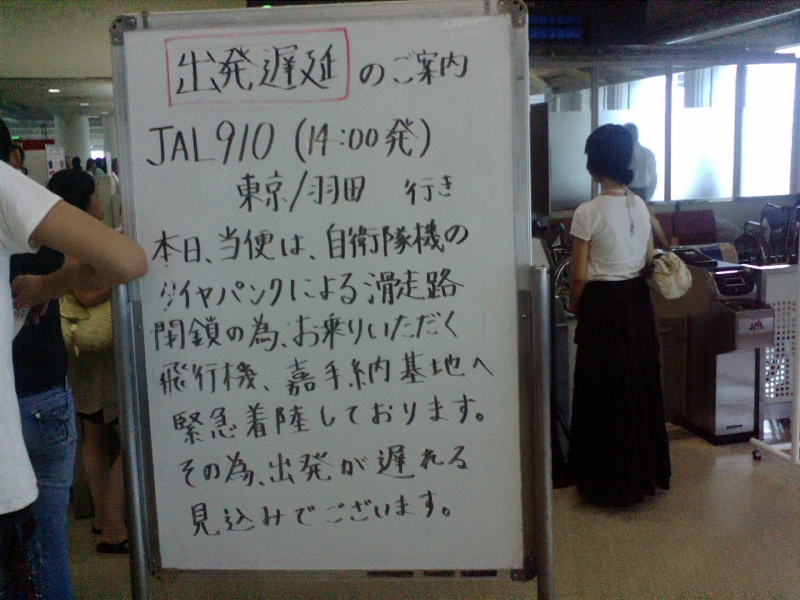 出発遅延 のご案内
JAL910 (14:00発)
東京/羽田 行き
本日、当便は、自衛隊機の
タイヤパンクによる滑走路
閉鎖の為、お乗りいただく
飛行機、嘉手納基地へ
緊急着陸しております。
その為、出発が遅れる
見込みでございます。
JAL